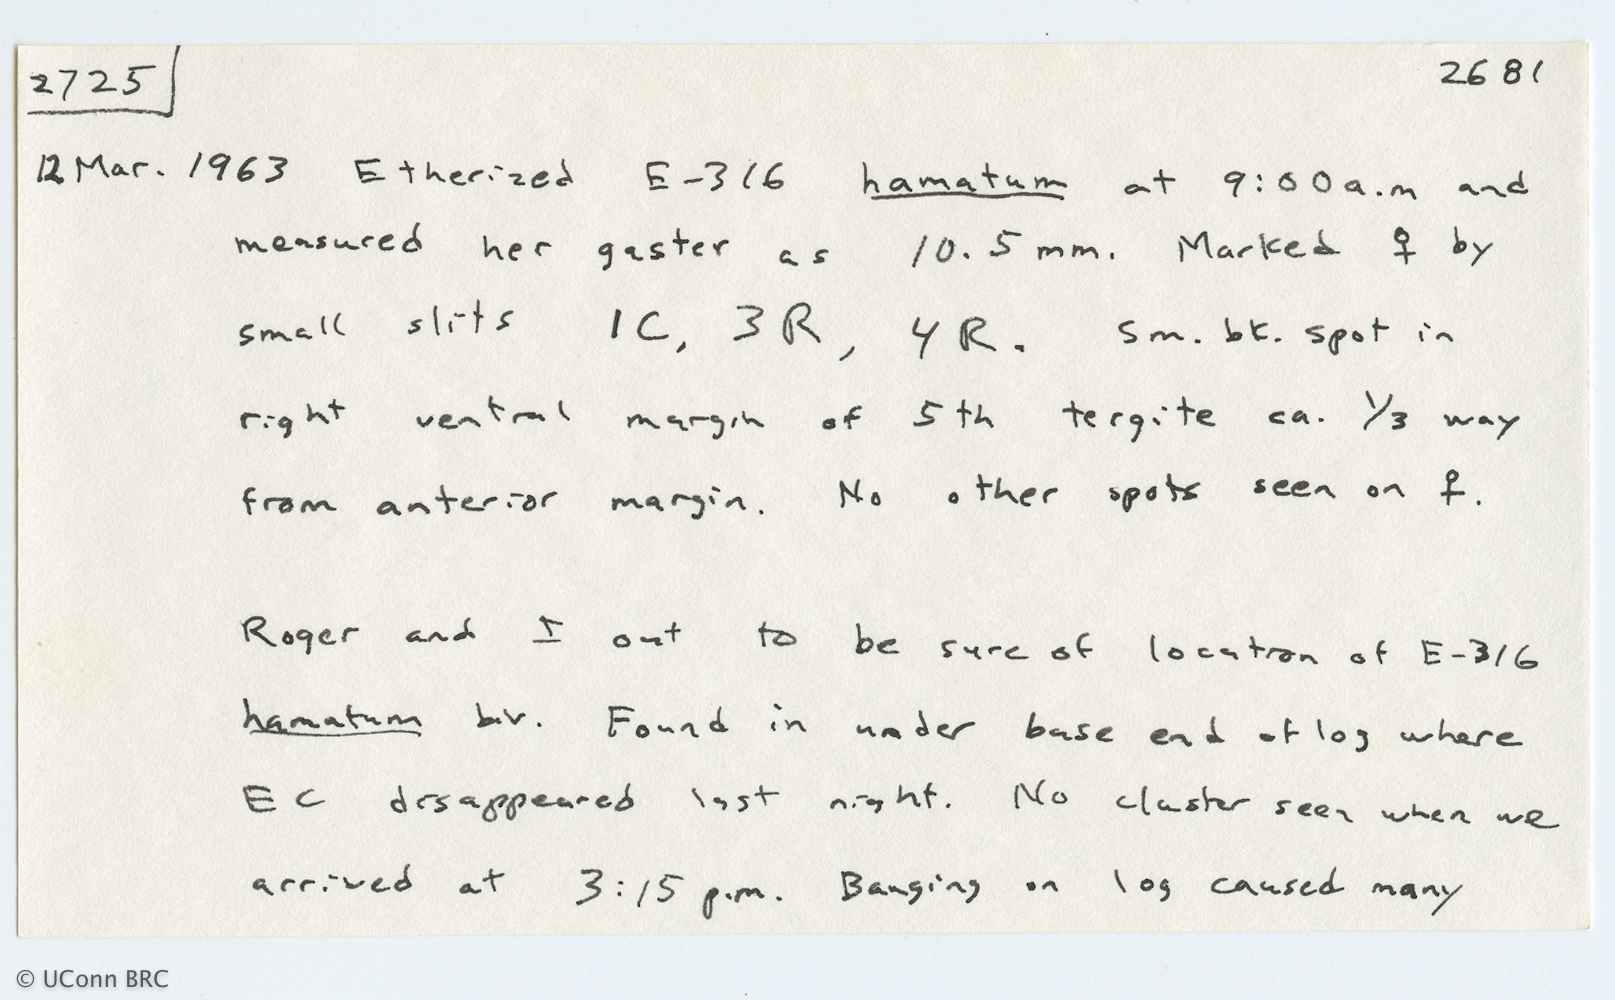 2725
2681
12 Mar. 1963 Etherized E-316 hamatum at 9:00a.m and
measured her gaster as 10.5mm. Marked ♀ by
small slits 1C, 3R, 4R. Sm. bk. spot in
right ventral margin of 5th tergite ca. 1/3 way
from anterior margin. No other spots seen on ♀.
Roger and I out to be sure of location of E-316
hamatum biv. Found in under base end of log where
EC disappeared last night. No cluster seen when we
arrived at 3:15 p.m. Banging on log caused many
© UConn BRC